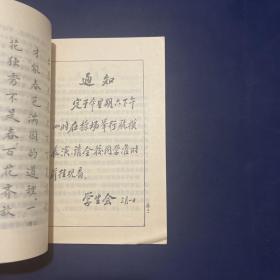 花独秀不是春百花齐放
才能春色满园的道理
通知
定于本星期六下午
一时在操场举行航模
表演，请全校同学准时
前往观看。
学生会